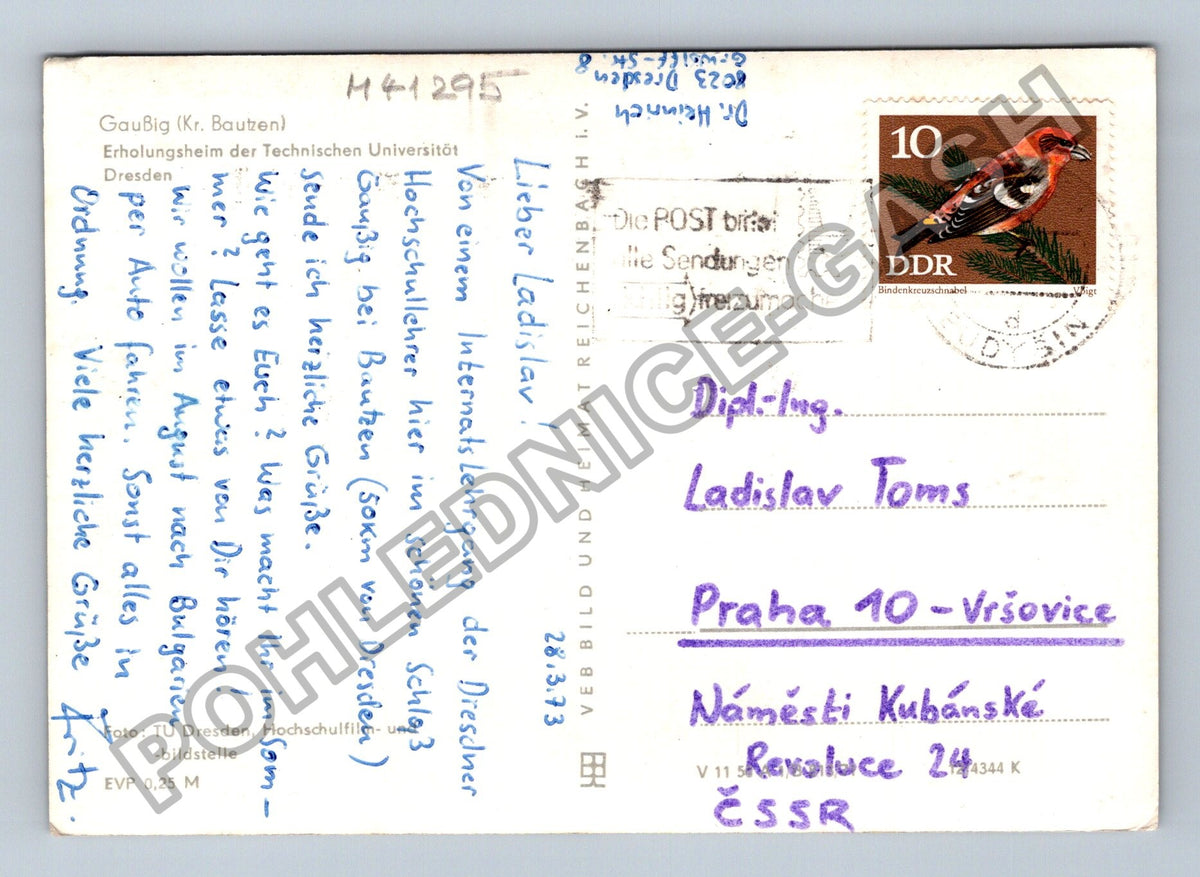 M41295
Gaußig (Kr. Bautzen)
Erholungsheim der Technischen Universität
Dresden
Dr. Heinrich
8023 Dresden
8
28.3.73
Lieber Ladislav!
Von einem Internatslehrgang der Dresdner
Hochschullehrer hier im schönen Schloß
Gaußig bei Bautzen (50km von Dresden)
sende ich herzliche Grüße.
Wie geht es Euch? Was macht Ihr im Som-
mer? Lasse etwas von Dir hören!
Wir wollen im August nach Bulgarien
per Auto fahren. Sonst alles in
Ordnung. Viele herzliche Grüße
Fritz.
Foto: TU Dresden, Hochschulfilm- und
-bildstelle
EVP 0,25 M
VEB BILD UND HEIMAT REICHENBACH I. V.
Die POST bittet
alle Sendungen
freizumachen
10
DDR
Bindenkreuzschnabel Voigt
BUDYŠIN
Dipl.-Ing.
Ladislav Toms
Praha 10 - Vršovice
Náměstí Kubánské
Revoluce 24
ČSSR
V 11 50 4344 K
POHLEDNICE-GASH